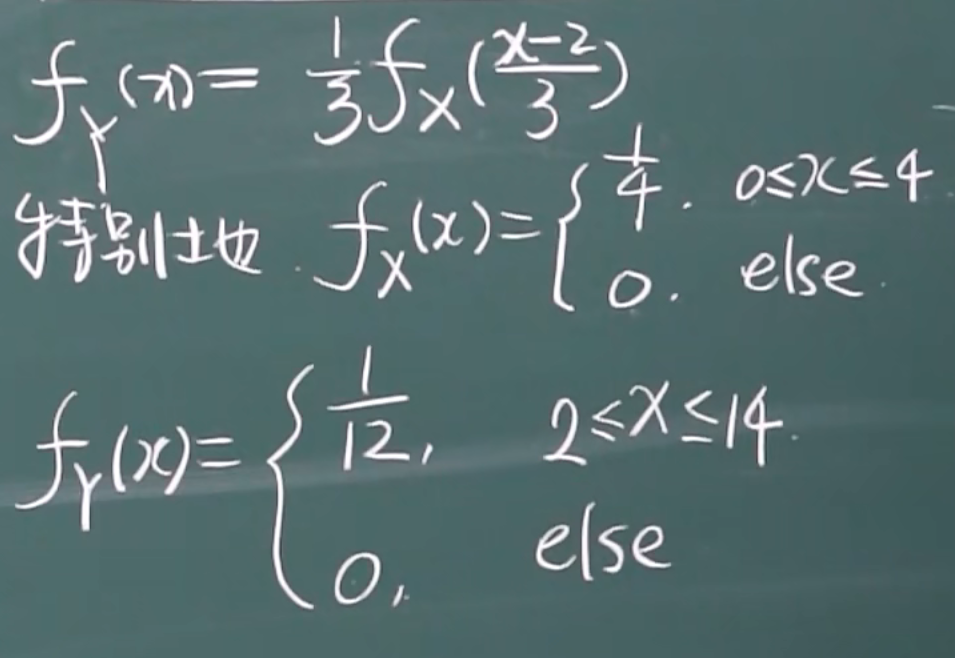 f_Y(x) = 1/3 f_X((x-2)/3)
特别地. f_X(x) = { 1/4. 0≤x≤4
0. else.
f_Y(x) = { 1/12, 2≤x≤14.
0, else